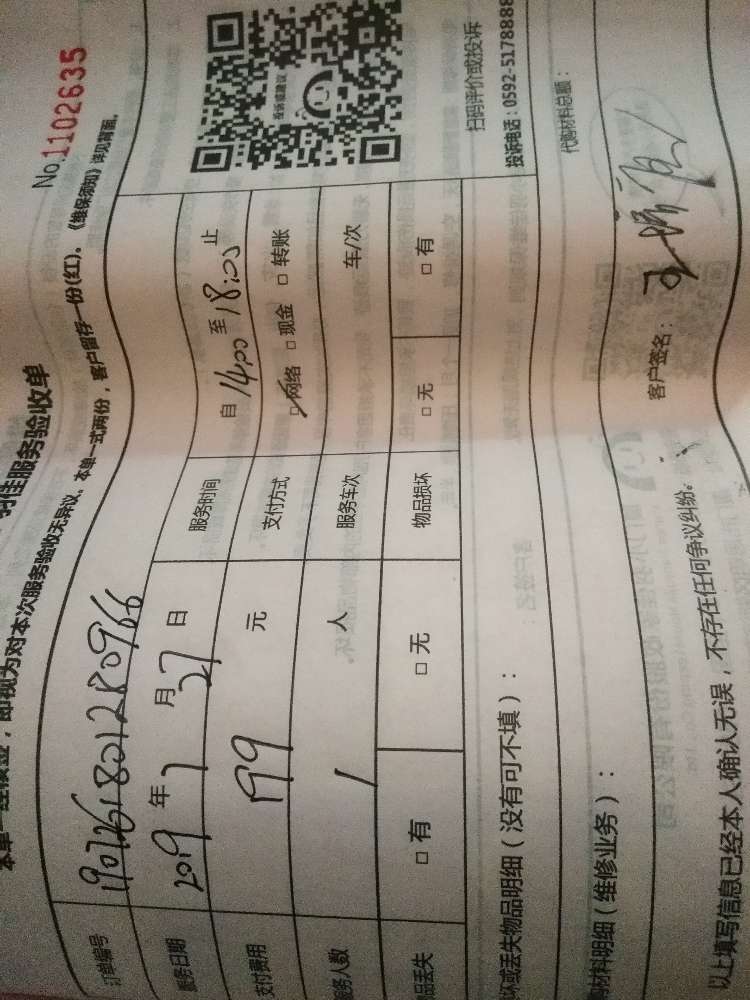 佳服务验收单
No.1102635
本单一经核签，即视为对本次服务验收无异议、本单一式两份，客户留存一份(红)。《维保须知》详见背面。
订单编号 1907261801280966
服务日期 2019年7月27日 服务时间 自14:00至18:00止
支付费用 199元 支付方式 □网络 □现金 □转账
服务人数 1人 服务车次 车/次
品丢失 □有 □无 物品损坏 □无 □有
投诉或建议
扫码评价或投诉
投诉电话：0592-5178888
坏或丢失物品明细（没有可不填）：
材料明细（维修业务）：
代购材料总额：
以上填写信息已经本人确认无误，不存在任何争议纠纷。
客户签名：